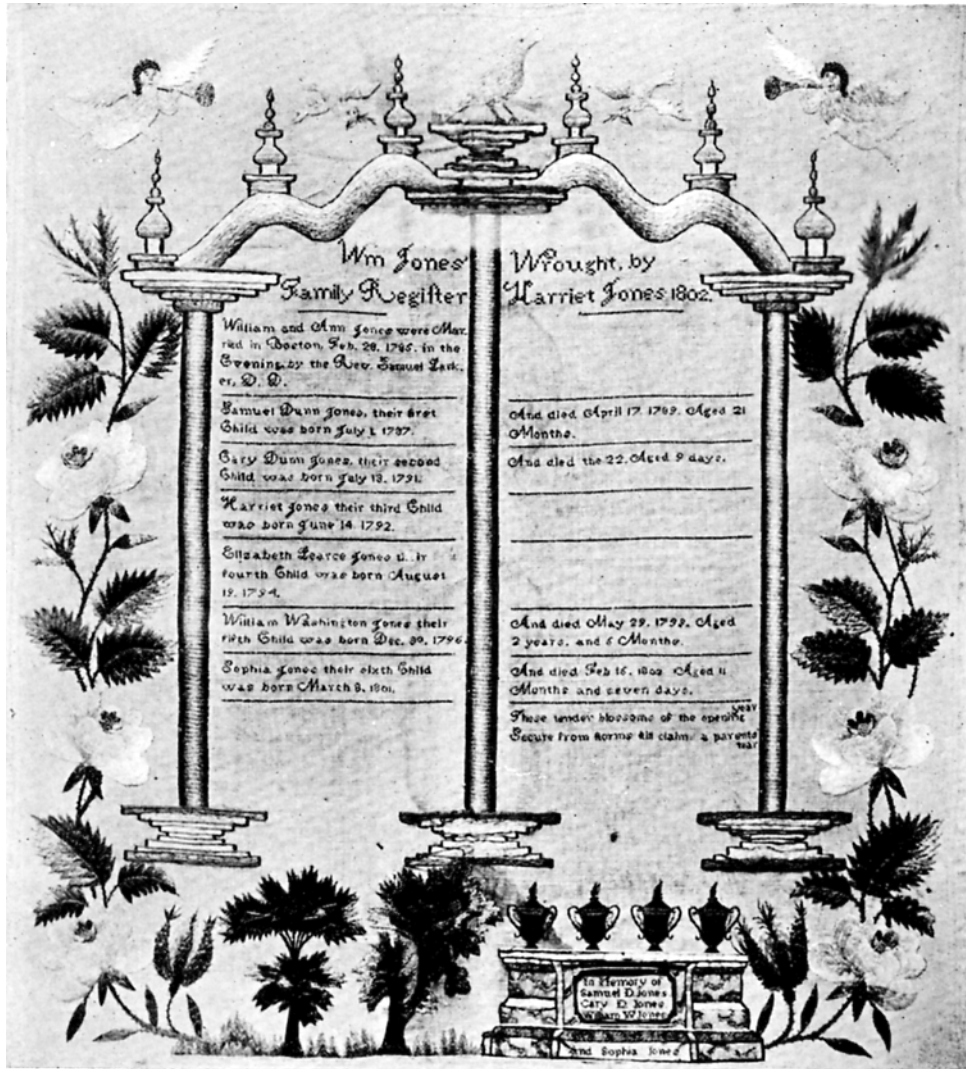 Wm Jones'
Family Regiſter
William and Ann Jones were Mar,
ried in Boston, Feb. 28. 1785. in the
Evening, by the Rev. Samuel Park,
er, D. D.
Samuel Dunn Jones, their first
Child was born July 1. 1787.
Cary Dunn Jones, their second
Child was born July 13. 1791.
Harriet Jones their third Child
was born June 14. 1792.
Elizabeth Pearce Jones
fourth Child was born August
19. 1794.
William Washington Jones their
fifth Child was born Dec. 30. 1796.
Sophia Jones their sixth Child
was born March 8. 1801.
Wrought, by
Harriet Jones 1802.
And died April 17. 1789. Aged 21
Months.
And died the 22. Aged 9 days.
And died May 29. 1799. Aged
2 years, and 5 Months.
And died Feb 15. 1802 Aged 11
Months and seven days.
These tender blossoms of the opening year
Secure from storms still claim a parents' tear
In Memory of
Samuel D. Jones
Cary D. Jones
William W. Jones
and Sophia Jones